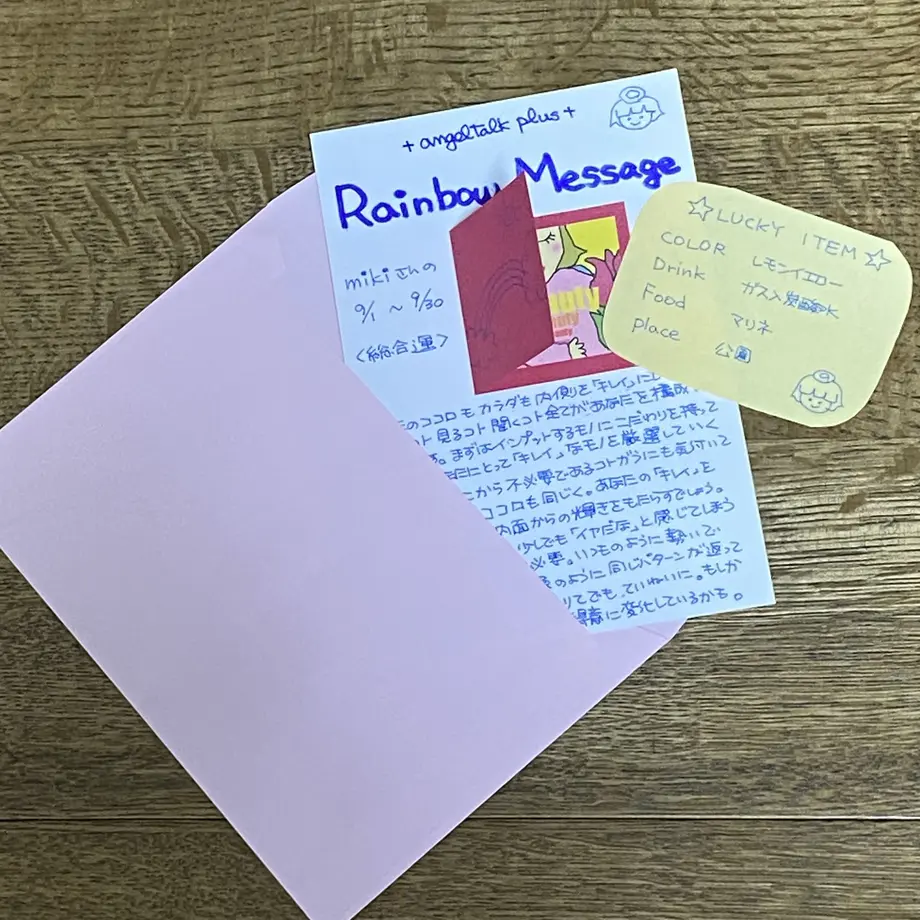 + angeltalk plus +
Rainbow Message
mikiさんの
9/1 ~ 9/30
<総合運>
のココロもカラダも内側を「キレイ」に
見るコト聞くコト全てがあなたを構成
。まずはインプットするモノにこだわりを持って
にとって「キレイ」なモノを厳選していく
から不必要であるコトがらにも気付いて
ココロも同じく。あなたの「キレイ」を
内面からの輝きをもたらすでしょう。
少しでも「イヤだな」と感じてしまう
必要。いつものように動いで
のように同じパターンが返って
りてでも、ていねいに。もしか
に変化しているかも。
☆LUCKY ITEM☆
COLOR レモンイエロー
Drink ガス入炭酸水
Food マリネ
place 公園